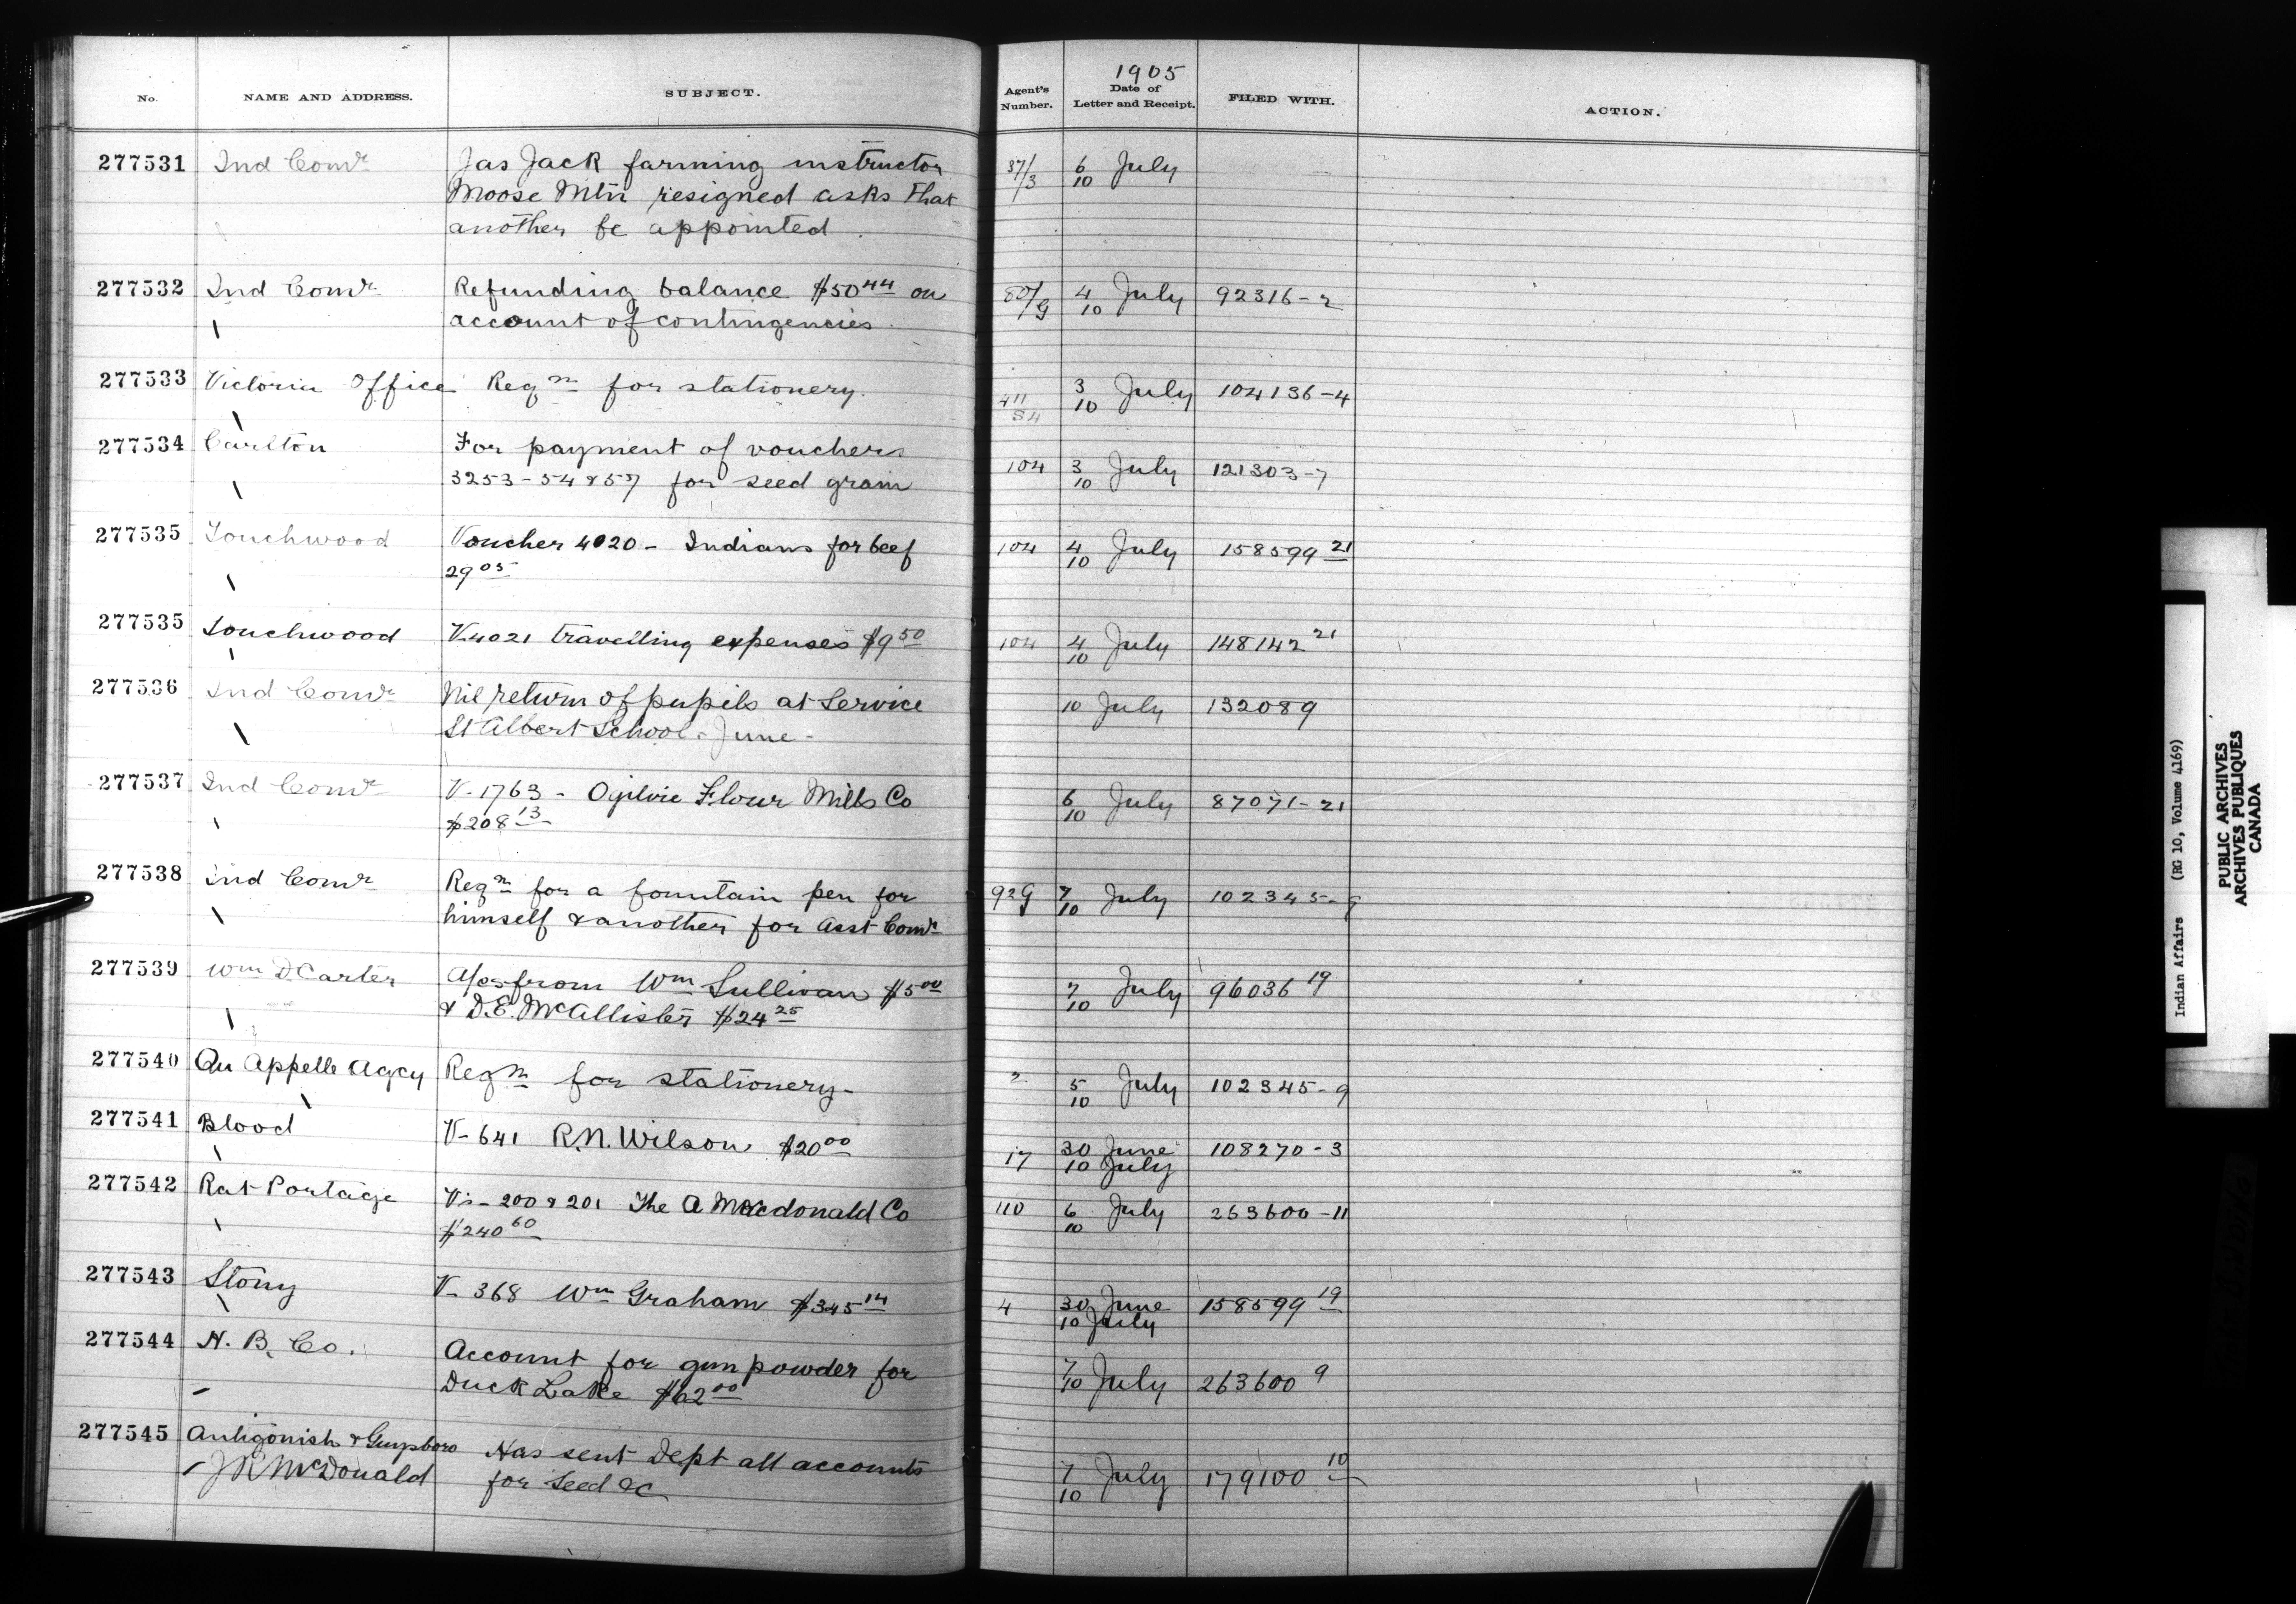 No. NAME AND ADDRESS. SUBJECT. Agent's Number. 1905 Date of Letter and Receipt. FILED WITH. ACTION.
277531 Ind Comr Jas Jack farming instructor 37/3 6 July
Moose Mtn resigned asks that 10
another be appointed
277532 Ind Comr Refunding balance $50 44 on 80/G 4 July 92316-2
account of contingencies 10
277533 Victoria Office Reqn for stationery. 411 S4 3 July 104136-4
10
277534 Carlton For payment of vouchers 104 3 July 121303-7
3253-54 & 57 for seed grain 10
277535 Touchwood Voucher 4020 - Indians for beef 104 4 July 158599 21
29 05 10
277535 Touchwood V4021 travelling expenses $9 50 104 4 July 148142 21
10
277536 Ind Comr Nil return of pupils at Service 10 July 132089
St Albert School - June -
277537 Ind Comr V-1763 - Ogilvie Flour Mills Co 6 July 87071-21
$208 13 10
277538 Ind Comr Reqn for a fountain pen for 92G 7 July 102345-9
himself & another for Asst Comr 10
277539 Wm D. Carter A/cs from Wm Sullivan $5 00 7 July 96036 19
& D.E. McAllister $24 25 10
277540 Qu Appelle Agcy Reqn for stationery - 2 5 July 102345-9
10
277541 Blood V-641 R.N. Wilson $20 00 17 30 June 108270-3
10 July
277542 Rat Portage Vs-200 & 201 The A Macdonald Co 110 6 July 263600-11
$240 60 10
277543 Stony V-368 Wm Graham $345 14 4 30 June 158599 19
10 July
277544 H. B. Co. Account for gun powder for 7 July 263600 9
Duck Lake $62 00 10
277545 Antigonish & Guysboro Has sent Dept all accounts 7 July 179100 10
McDonald for seed &c 10
Indian Affairs (RG 10, Volume 4169)
PUBLIC ARCHIVES
ARCHIVES PUBLIQUES
CANADA